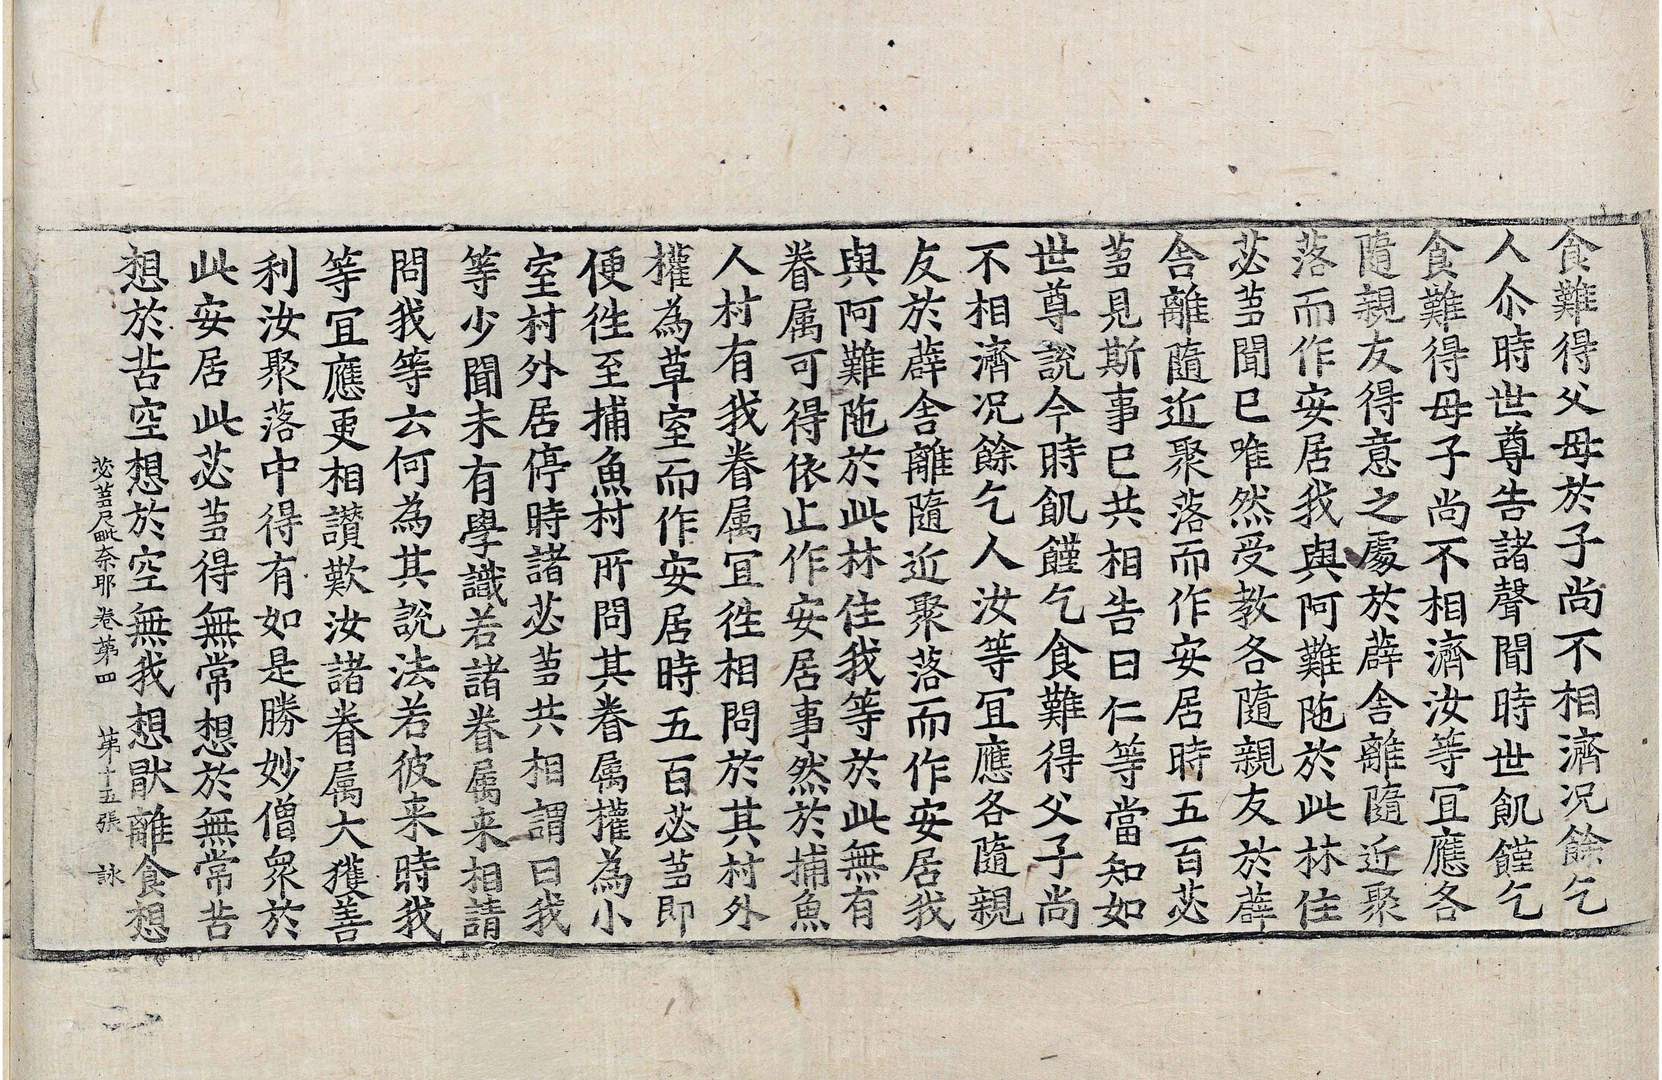 食難得父母於子尚不相濟況餘乞
人尒時世尊告諸聲聞時世飢饉乞
食難得母子尚不相濟汝等冝應各
隨親友得意之處於薜舍離隨近聚
落而作安居我與阿難陁於此林住
苾芻聞已唯然受教各隨親友於薜
舍離隨近聚落而作安居時五百苾
芻見斯事已共相告曰仁等當知如
世尊說今時飢饉乞食難得父子尚
不相濟況餘乞人汝等冝應各隨親
友於薜舍離隨近聚落而作安居我
與阿難陁於此林住我等於此無有
眷属可得依止作安居事然於捕魚
人村有我眷属冝徃相問於其村外
權為草室而作安居時五百苾芻即
便徃至捕魚村所問其眷属權為小
室村外居停時諸苾芻共相謂曰我
等少聞未有學識若諸眷属来相請
問我等云何為其說法若彼来時我
等冝應更相讃歎汝諸眷属大獲善
利汝聚落中得有如是勝妙僧衆於
此安居此苾芻得無常想於無常苦
想於苦空想於空無我想猒離食想
苾芻尼毗奈耶卷第四 第十五張 詠